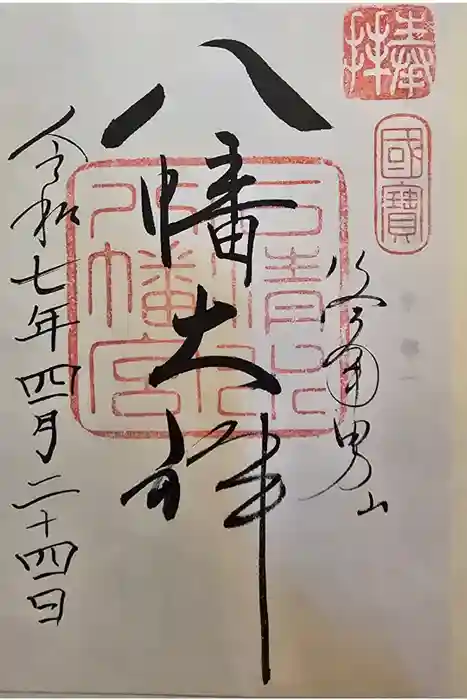 奉拝
國寶
男山
八幡大神
石清水
八幡宮
令和七年四月二十四日